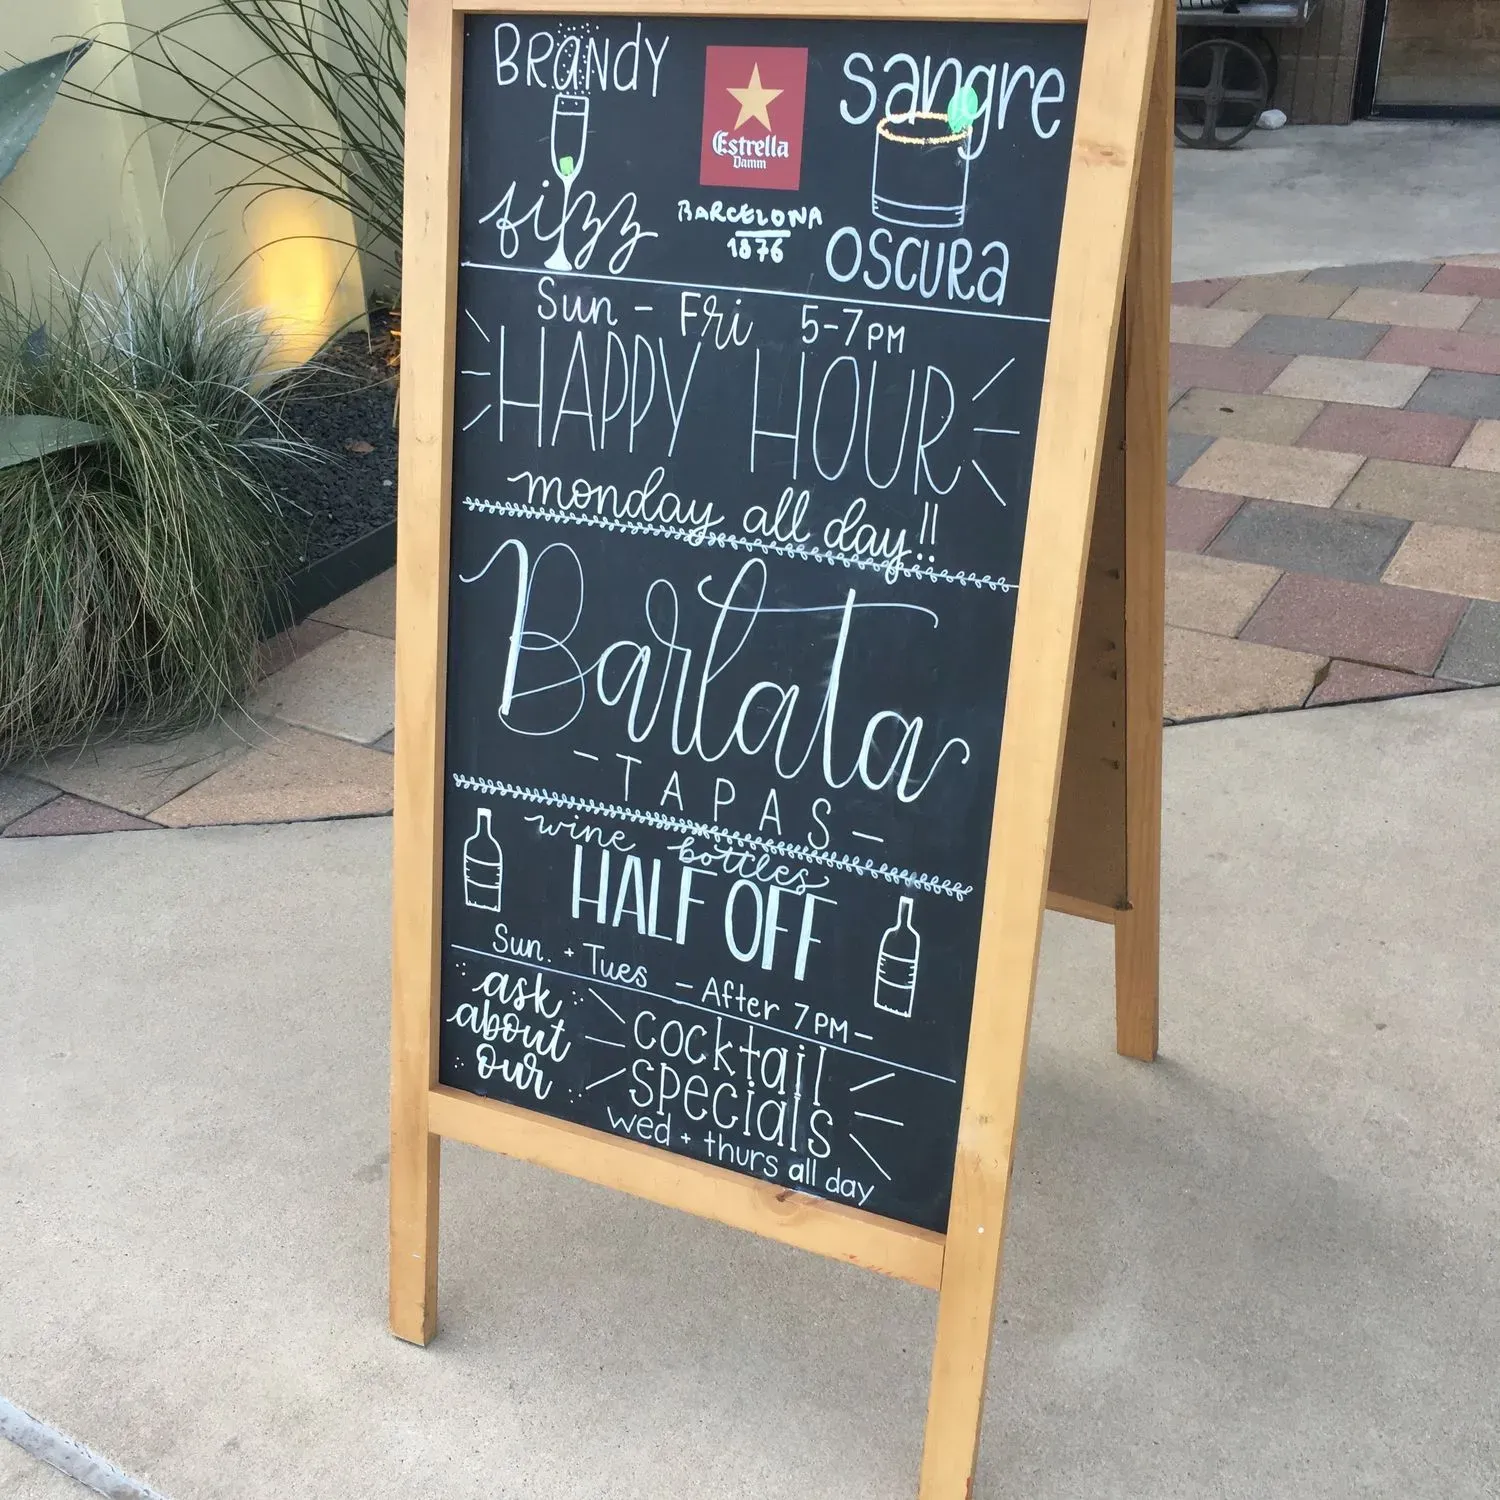 BRandY
fizz
Estrella
Damm
BARCELONA
1876
sangre
OSCURa
Sun - Fri 5-7PM
HAPPY HOUR
monday all day!!
Barlata
- TAPAS -
wine bottles
HALF OFF
Sun. + Tues - After 7PM -
ask
about
our
cocktail
specials
wed + thurs all day